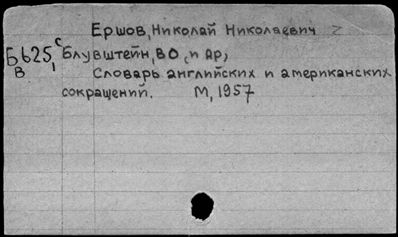 Ершов, Николай Николаевич
Б625, с Блувштейн, ВО, и др,
В Словарь английских и американских
сокращений. М, 1957